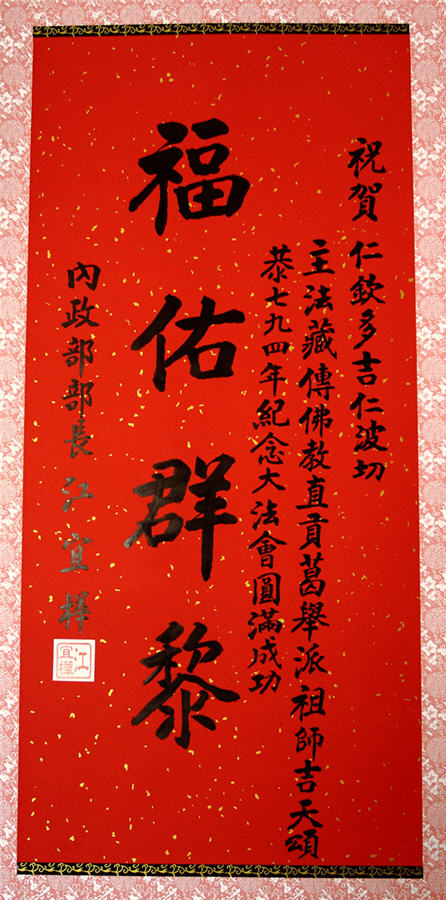 祝賀 仁欽多吉仁波切
主法藏傳佛教直貢葛舉派祖師吉天頌
恭七九四年紀念大法會圓滿成功
福佑群黎
內政部部長 江宜樺
江宜樺